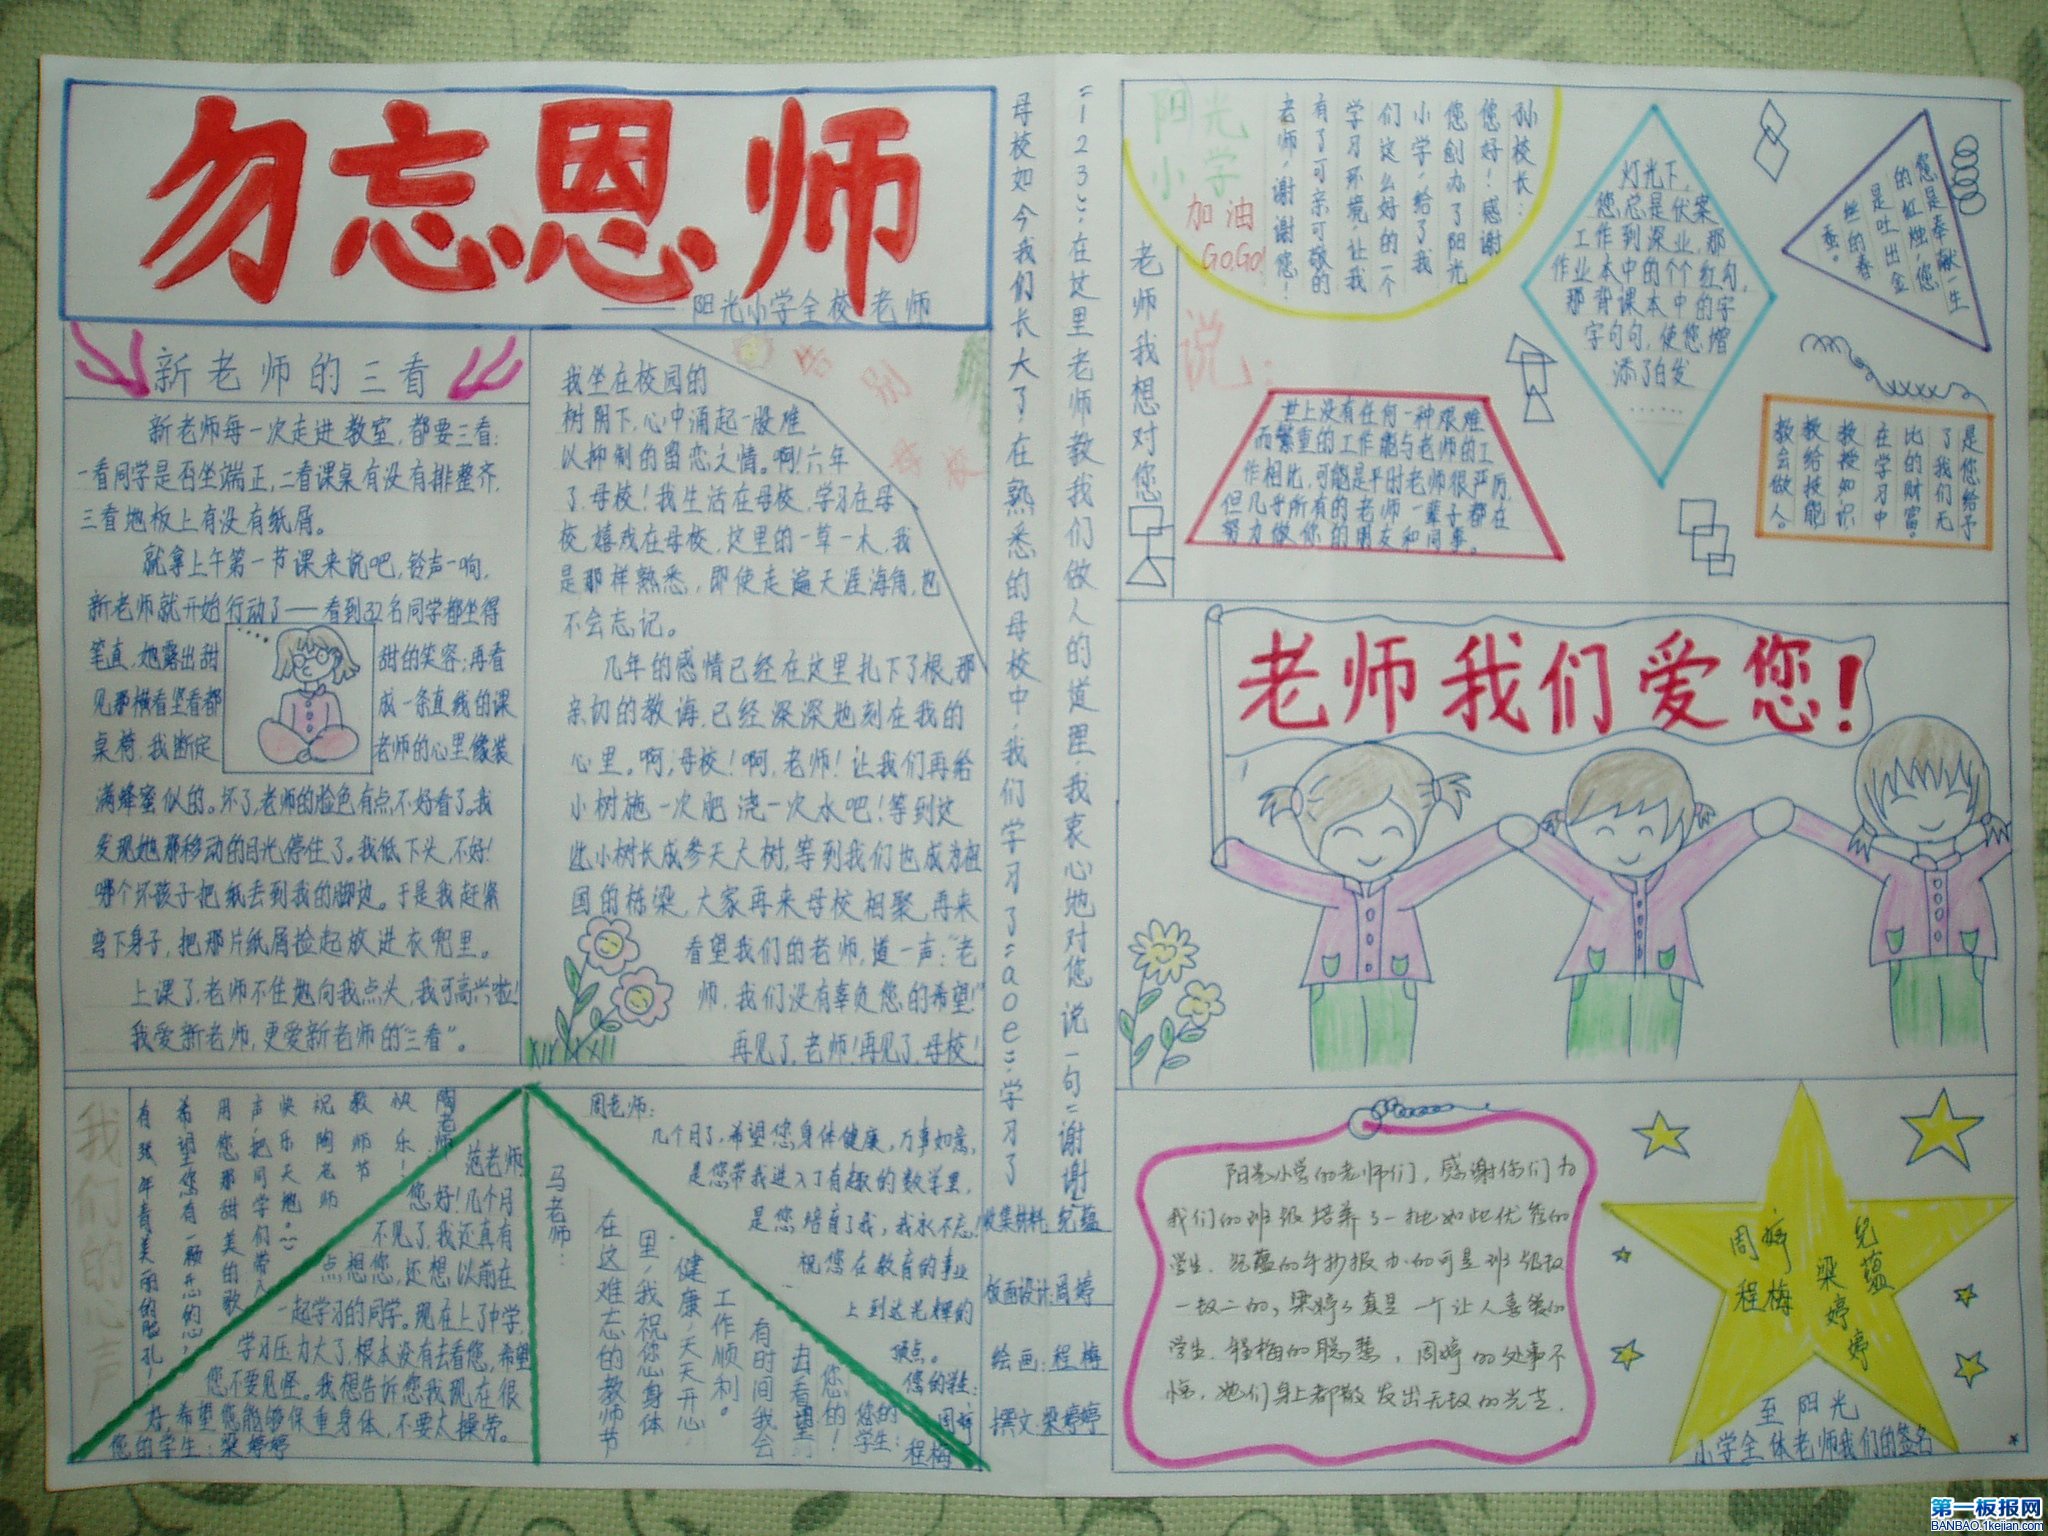 勿忘恩师
——阳光小学全校老师
新老师的三看
新老师每一次走进教室，都要三看：
一看同学是否坐端正，二看课桌有没有排整齐，
三看地板上有没有纸屑。
就拿上午第一节课来说吧，铃声一响，
新老师就开始行动了——看到32名同学都坐得
笔直，她露出甜甜的笑容；再看
见那横看竖看都成一条直线的课
桌椅，我断定老师的心里像装
满蜂蜜似的。坏了，老师的脸色有点不好看了。我
发现她那移动的目光停住了。我低下头，不好！
哪个坏孩子把纸丢到我的脚边。于是我赶紧
弯下身子，把那片纸屑捡起放进衣兜里。
上课了，老师不住地向我点头，我可高兴啦！
我爱新老师，更爱新老师的“三看”。
告别母校
我坐在校园的
树阴下，心中涌起一股难
以抑制的留恋之情。啊！六年
了，母校！我生活在母校，学习在母
校，嬉戏在母校，这里的一草一木，我
是那样熟悉，即使走遍天涯海角，也
不会忘记。
几年的感情已经在这里扎下了根，那
亲切的教诲，已经深深地刻在我的
心里。啊，母校！啊，老师！让我们再给
小树施一次肥浇一次水吧！等到这
些小树长成参天大树，等到我们也成为祖
国的栋梁，大家再来母校相聚，再来
看望我们的老师，道一声：“老
师，我们没有辜负您的希望！”
再见了，老师！再见了，母校！
我们的心声
陶老师
教师节快乐！
祝陶老师
快乐天天地。
声，把同学们带入
用您那甜美的歌
希望您有一颗开心的心，
有张年青美丽的脸孔！
范老师
您好！几个月
不见了，我还真有
点想您，还想以前在
一起学习的同学。现在上了中学，
学习压力大了，根本没有去看您，希望
您不要见怪。我想告诉您我现在很
好，希望您能够保重身体，不要太操劳。
您的学生：梁婷婷
马老师：
在这难忘的教师节
里，我祝您身体
健康，天天开心，
工作顺利。
有时间我会
去看望
您的！
您的学生：
程梅
周老师：
几个月了，希望您身体健康，万事如意，
是您带我进入了有趣的数学里，
是您培育了我，我永不忘！
祝您在教育的事业
上到达光辉的
顶点。
您的学生：
周婷
母校如今我们长大了，在熟悉的母校中，我们学习了“aoe”学习了
“123”，在这里老师教我们做人的道理，我衷心地对您说一句“谢谢”
收集材料：纪蕴
版面设计：周婷
绘画：程梅
撰文：梁婷婷
阳光
小学
加油
GO,GO!
孙校长：
您好！感谢
您创办了阳光
小学，给了我
们这么好的一个
学习环境，让我
有了可亲可敬的
老师，谢谢您！
老师我想对您
说：
灯光下，
您总是伏案
工作到深业，那
作业本中的个个红勾，
那背课本中的字
字句句，使您增
添了白发
……
您是奉献一生
的红烛，您
是吐出金
丝的春
蚕。
世上没有任何一种艰难
而繁重的工作能与老师的工
作相比，可能是平时老师很严厉，
但几乎所有的老师一辈子都在
努力做你的朋友和同事。
是您给予
了我们无
比的财富。
在学习中
教授知识
教给技能
教会做人。
老师我们爱您！
阳光小学的老师们，感谢你们为
我们的班级培养了一批如此优秀的
学生。纪蕴的手抄报办的可是班级数
一数二的，梁婷婷真是一个让人喜爱的
学生，程梅的聪慧，周婷的处事不
惊，她们身上都散发出无数的光芒。
周婷
程梅
纪蕴
梁婷婷
至阳光
小学全体老师我们的签名
第一板报网
BANBAO.1kejian.com